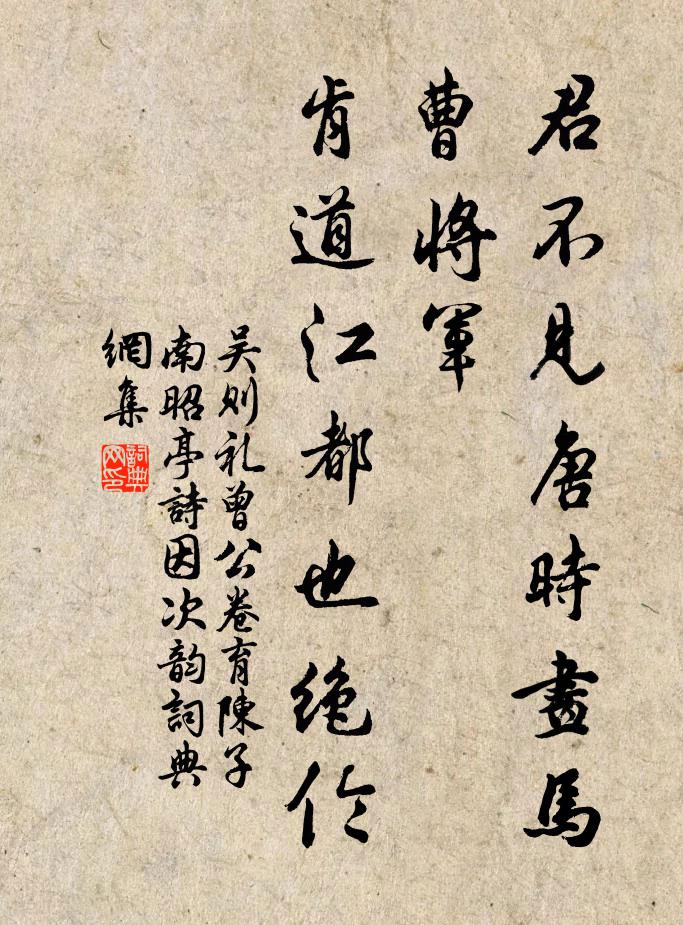 君不見唐時畫馬
曹將軍
肯道江都也絶伦
吴则礼曾公卷育陳子
南昭亭詩因次韵詞典
網集
詞典
网印